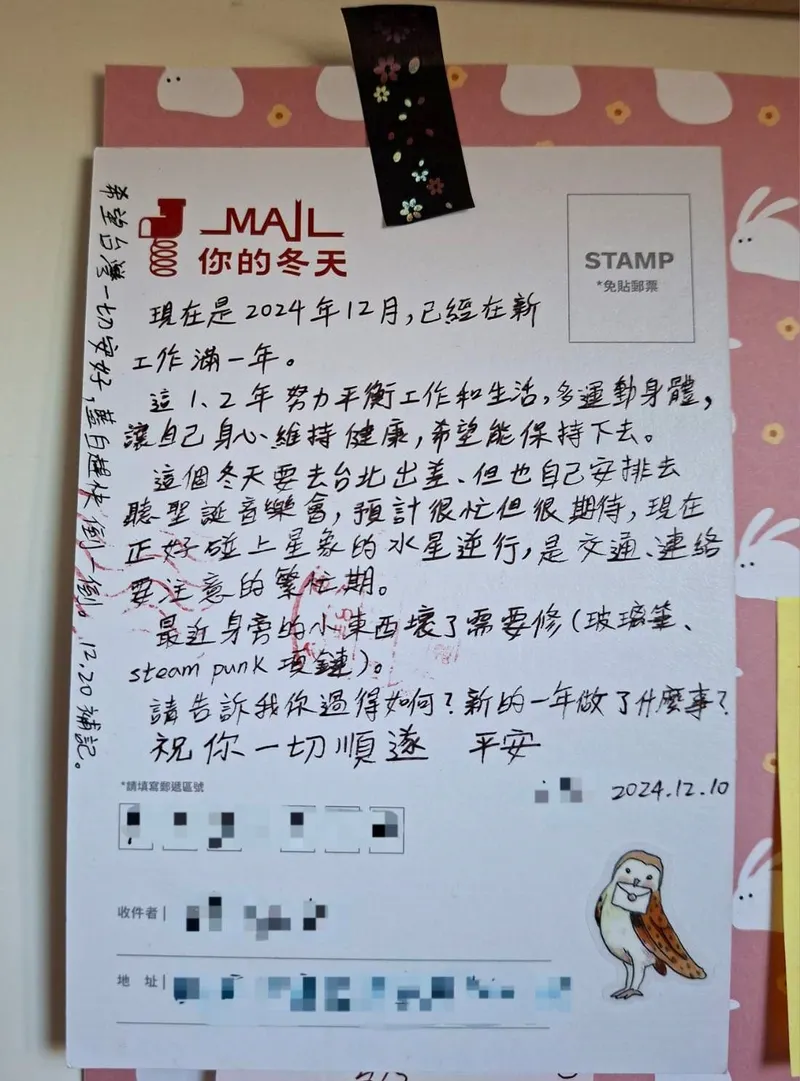 MAIL
你的冬天
STAMP
*免貼郵票
現在是2024年12月,已經在新
工作滿一年。
這1、2年努力平衡工作和生活,多運動身體,
讓自己身心維持健康,希望能保持下去。
這個冬天要去台北出差、但也自己安排去
聽聖誕音樂會,預計很忙但很期待,現在
正好碰上星象的水星逆行,是交通、連絡
要注意的繁忙期。
最近身旁的小東西壞了需要修(玻璃筆、
steam punk 項鏈)。
請告訴我你過得如何?新的一年做了什麼事?
祝你一切順遂 平安
2024.12.10
希望台灣一切安好,藍白趕快倒一倒。12.20補記。
*請填寫郵遞區號
收件者|
地 址|